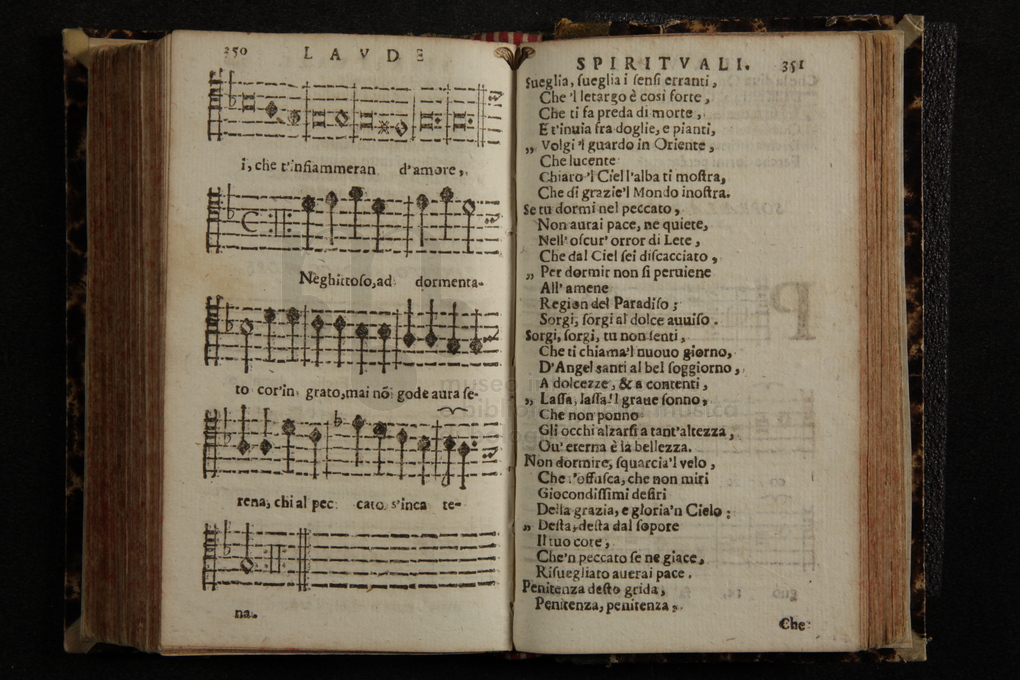 350 LAVDE
i, che t'infiammeran d'amore,
Neghittoso, ad dormenta-
to cor'in grato, mai nõ gode aura se-
rena, chi al pec cato s'inca te-
na.
SPIRITVALI. 351
Sueglia, sueglia i sensi erranti,
Che 'l letargo è cosi forte,
Che ti fa preda di morte,
E t'inuia fra doglie, e pianti,
„ Volgi 'l guardo in Oriente,
Che lucente
Chiaro 'l Ciel l'alba ti mostra,
Che di grazie'l Mondo inostra.
Se tu dormi nel peccato,
Non aurai pace, ne quiete,
Nell' oscur' orror di Lete,
Che dal Ciel sei discacciato,
„ Per dormir non si peruiene
All' amene
Region del Paradiso;
Sorgi, sorgi al dolce auuiso.
Sorgi, sorgi, tu non senti,
Che ti chiama'l nuouo giorno,
D'Angel santi al bel soggiorno,
A dolcezze, & a contenti,
„ Lassa, lassa'l graue sonno,
Che non ponno
Gli occhi alzarsi a tant'altezza,
Ou' eterna è la bellezza.
Non dormire, squarcia'l velo,
Che t'offusca, che non miri
Giocondissimi desiri
Della grazia, e gloria'n Cielo:
„ Desta, desta dal sopore
Il tuo core,
Che'n peccato se ne giace,
Risuegliato auerai pace.
Penitenza desto grida,
Penitenza, penitenza,
Che